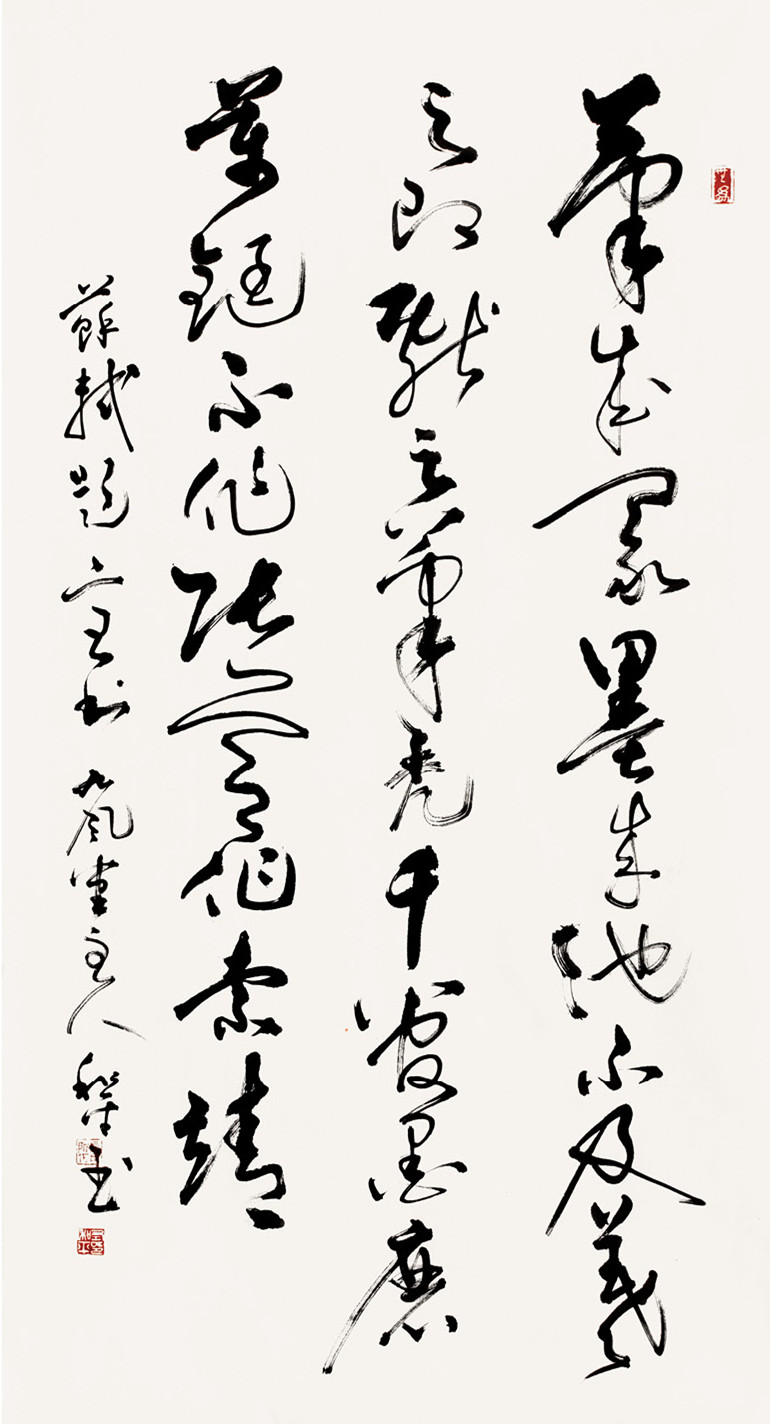 筆成冢墨成池不及羲
之即獻之筆禿千管墨磨
萬鋌不作張芝作索靖
蘇軾題二王書 九風堂主人 和平書